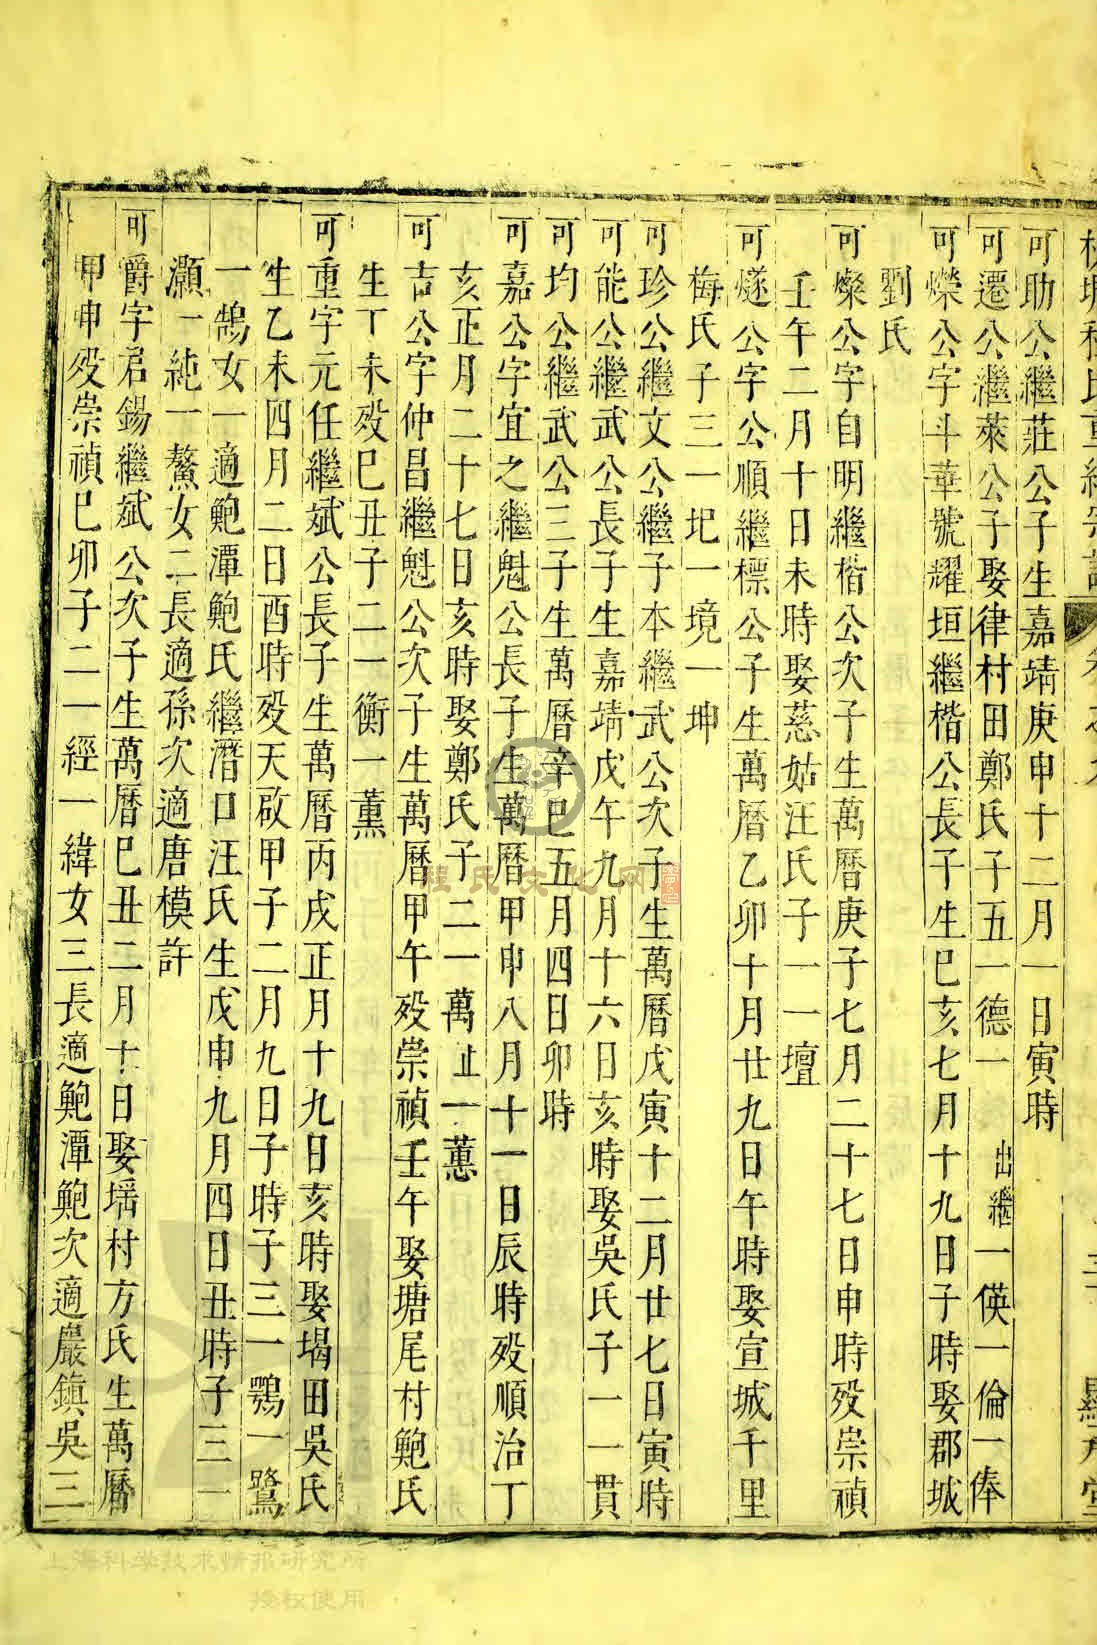 可助公繼莊公子生嘉靖庚申十二月一日寅時
可遷公繼萊公子娶律村田鄭氏子五一德一 出繼一偀一倫一俸
可爃公字斗華號耀垣繼楷公長子生巳亥七月十九日子時娶郡城
劉氏
可燦公字自明繼楷公次子生萬曆庚子七月二十七日申時殁崇禎
壬午二月十日未時娶慈姑汪氏子一一壇
可燧公字公順繼標公子生萬曆乙卯十月廿九日午時娶宣城千里
梅氏子三一圯一境一坤
可珍公繼文公繼子本繼武公次子生萬曆戊寅十二月廿七日寅時
可能公繼武公長子生嘉靖戊午九月十六日亥時娶吳氏子一一貫
可均公繼武公三子生萬曆辛巳五月四日卯時
可嘉公字宜之繼魁公長子生萬曆甲申八月十一日辰時殁順治丁
亥正月二十七日亥時娶鄭氏子二一萬止一蕙
可吉公字仲昌繼魁公次子生萬曆甲午殁崇禎壬午娶塘尾村鮑氏
生丁未殁巳丑子二一衡一薰
可重字元任繼斌公長子生萬曆丙戌正月十九日亥時娶堨田吳氏
生乙未四月二日酉時殁天啟甲子二月九日子時子三一鶚一鷺
一鵠女一適鮑潭鮑氏繼潛口汪氏生戊申九月四日丑時子三一
灝一純一鰲女二長適孫次適唐模許
可爵字君錫繼斌公次子生萬曆巳丑二月十日娶瑶村方氏生萬曆
甲申殁崇禎巳卯子二一經一緯女三長適鮑潭鮑次適巖鎮吳三
程氏文化网
上海科学技术情报研究所
授权使用